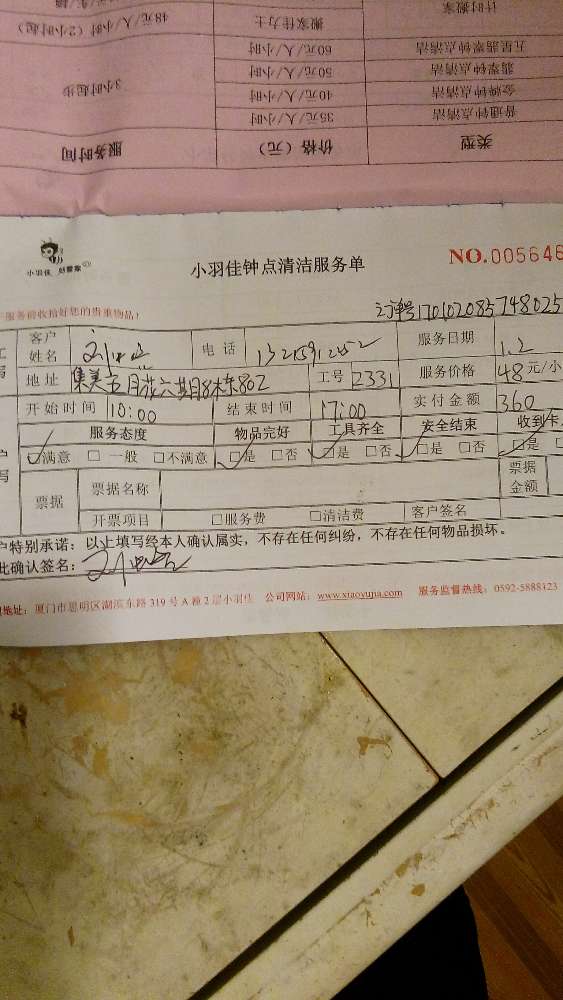 计时搬家 搬家佳力士 48元/人/小时（2小时起）
五星翡翠钟点清洁 60元/人/小时
翡翠钟点清洁 50元/人/小时 3小时起步
金牌钟点清洁 40元/人/小时
普通钟点清洁 35元/人/小时
类型 价格（元） 服务时间
小羽佳 小羽佳钟点清洁服务单 NO.005648
服务前收拾好您的贵重物品！
订单号170102085748025
客户姓名 电话 服务日期 1.2
地址 集美五月花六期8栋802 工号 2331 服务价格 48元/小
开始时间 10:00 结束时间 17:00 实付金额 360
服务态度 物品完好 工具齐全 安全结束 收到卡
☑满意 □一般 □不满意 ☑是 □否 ☑是 □否 ☑是 □否 ☑是
票据 票据名称 票据金额
开票项目 □服务费 □清洁费 客户签名
户特别承诺：以上填写经本人确认属实，不存在任何纠纷，不存在任何物品损坏。
此确认签名：
地址：厦门市思明区湖滨东路319号A幢2层小羽佳 公司网站：www.xiaoyujia.com 服务监督热线：0592-5888123